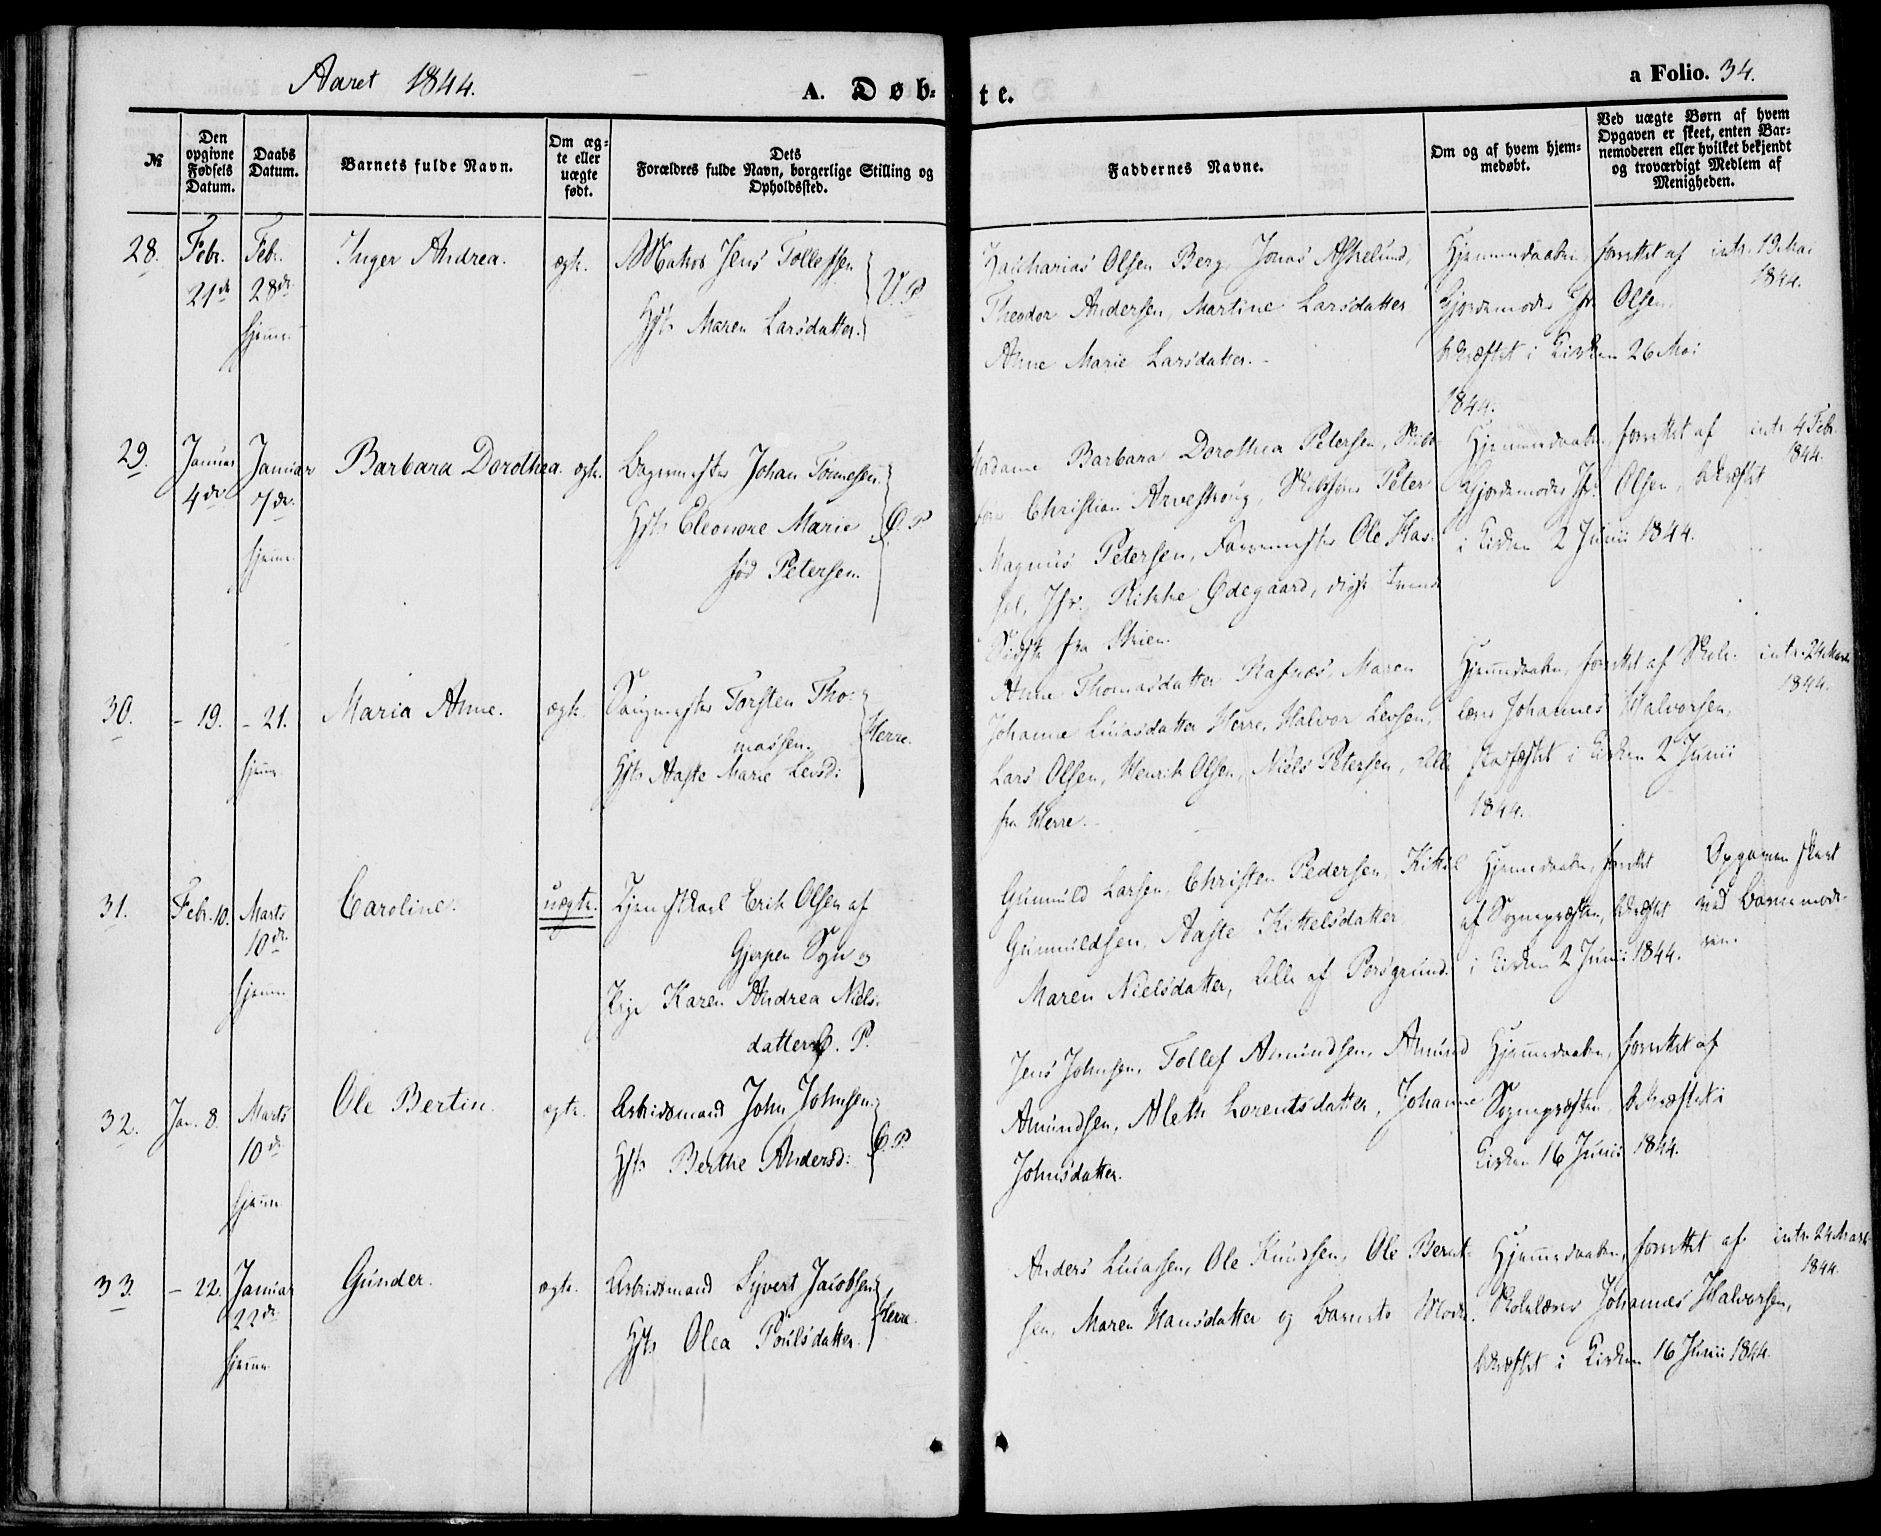 Aaret 1844.
A. Døb-
te.
a Folio. 34.
№
Den
opgivne
Fødsels
Datum.
Daabs
Datum.
Barnets fulde Navn.
Om æg-
te eller
uægte
født.
Dets
Forældres fulde Navn, borgerlige Stilling og
Opholdssted.
Faddernes Navne.
Om og af hvem hjem-
medøbt.
Ved uægte Børn af hvem
Opgaven er skeet, enten Bar-
nemoderen eller hvilket bekjendt
og troværdigt Medlem af
Menigheden.
28.
Febr.
21de
Febr.
28de
hjemme
Inger Andrea.
ægte.
Matros Jens Tollefsen
Hst. Maren Larsdatter.
V. P
Zacharias Olsen Berg, Jonas Askelund,
Theodor Andersen, Martine Larsdatter
Anne Marie Larsdatter.
Hjemmedaaben forrettet af
Gjordemoder Olsen.
bekræftet i Kirken 26 Mai
1844.
intr. 19 Mai
1844.
29.
Januar
4de
Januar
7de
hjemme
Barbara Dorothea.
ægte.
Bagermester Johan Tønnesen
Hst. Eleonore Marie
fød Petersen.
Ø. P
Madame Barbara Dorothea Petersen,
Christian Arvestrøng, Skibsfører Peter
Magnus Petersen, Farvemester Ole Has-
sel, Jfr. Rikke Ødegaard,
fra Skien.
Hjemmedaaben forrettet af
Gjordemoder Olsen, bekræftet
i Kirken 2 Junii 1844.
intr. 4 Febr.
1844.
30.
- 19.
- 21.
hjemme
Maria Anne.
ægte.
Saugmester Torsten Tho-
massen.
Hst. Aaste Marie Levsd:
Herre.
Anne Thomasdatter Rafnæs, Maren
Johanne Lucasdatter Herre, Halvor Levsen,
Lars Olsen, Henrik Olsen, Niels Petersen, alle
fra Herre.
Hjemmedaaben, forrettet af Skole-
lærer Johannes Halvorsen,
stadfæstet i Kirken 2 Junii
1844.
intr. 24 Marts
1844.
31.
Febr. 10.
Marts
10de
hjemme
Caroline.
uægte.
Tjenestkarl Erik Olsen af
Gjerpen Sogn og
Pige Karen Andrea Niels-
datter Ø. P.
Gunnuld Larsen, Christen Pedersen, Kittil
Gunnuldsen, Aaste Kittelsdatter
Maren Nielsdatter, alle af Porsgrund.
Hjemmedaaben, forrettet
af Sognepræsten, bekræftet
i Kirken 2 Junii 1844.
Opgaven skeet
ved Barnemode-
ren.
32.
Jan. 8.
Marts
10de
hjemme
Ole Bertin.
ægte.
Arbeidsmand John Johnsen
Hst. Berthe Andersd:
Ø. P
Jens Johnsen, Tollef Amundsen, Amund
Amundsen, Aleth Lorentsdatter, Johanne
Johnsdatter.
Hjemmedaaben, forrettet af
Sognepræsten, bekræftet i
Kirken 16 Junii 1844.
33.
- 22.
Januar
22de
hjemme
Gunder.
ægte.
Arbeidsmand Syvert Jacobsen
Hst. Olea Poulsdatter.
Herre.
Anders Lucassen, Ole Knudsen, Ole Bernt-
sen, Maren Hansdatter og Barnets Moder.
Hjemmedaaben, forrettet af
Skolelærer Johannes Halvorsen,
bekræftet i Kirken 16 Junii 1844.
intr. 24 Marts
1844.